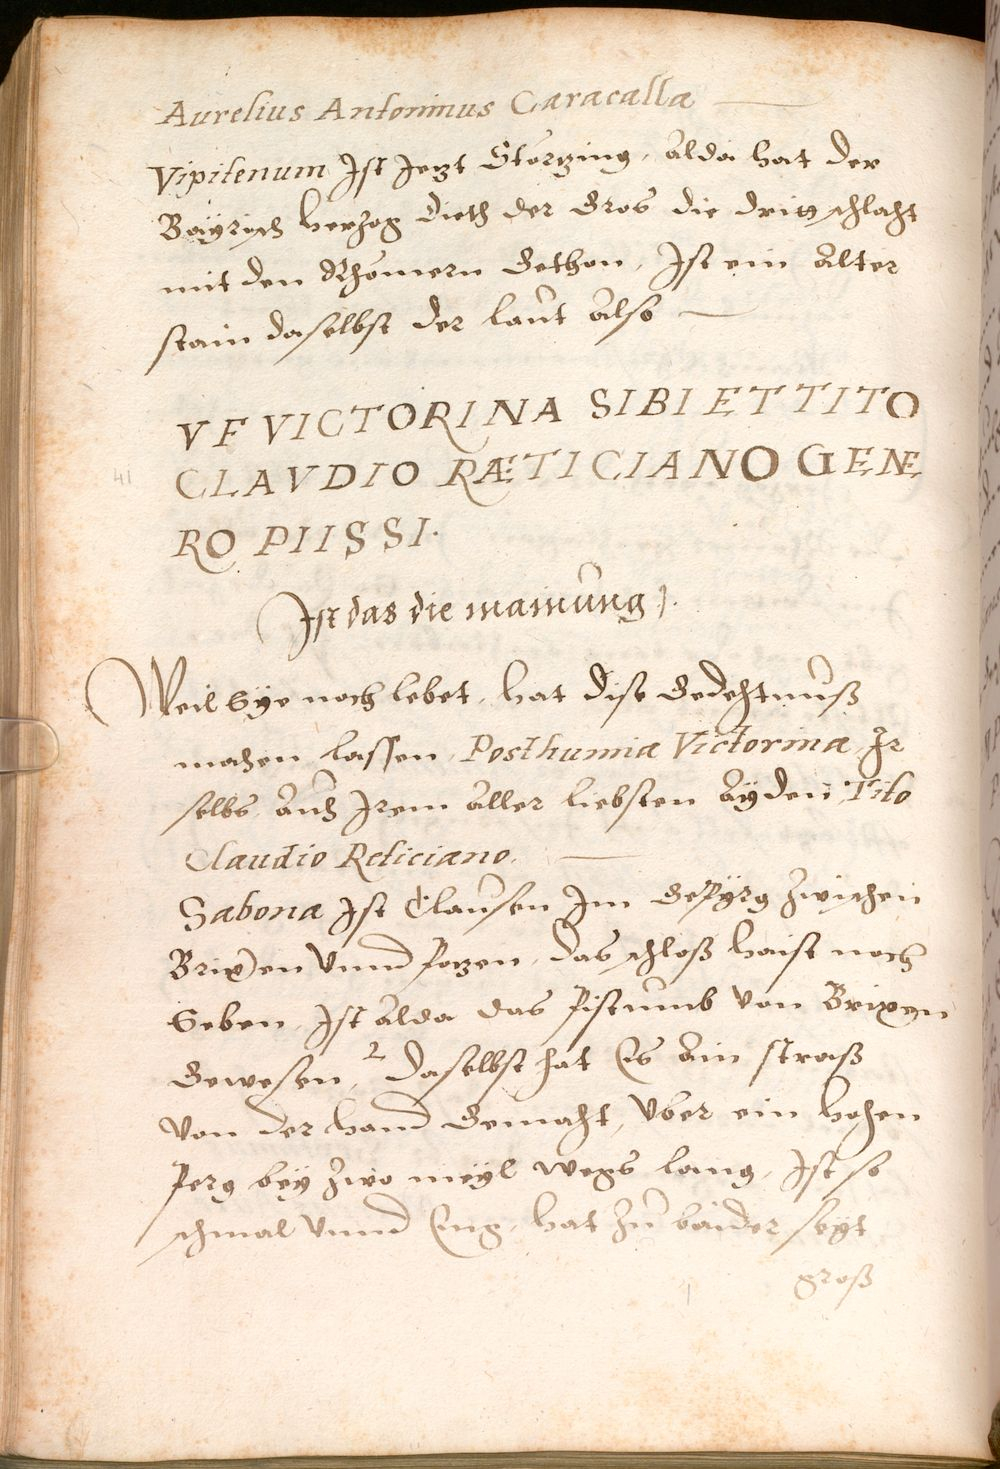 Aurelius Antoninus Caracalla
Vipitenum Ist Jetzt Störtzing, alda hat der
Bayrisch hertzog Dieth der Gros die drit schlacht
mit den Rhömern Gethon, Ist ein alter
stain daselbst der laut also
VF VICTORINA SIBI ET TITO
CLAVDIO RÆTICIANO GENÆ
RO PIISSI.
41
Ist das die mainung).
Weil Sye noch lebet, hat dise Gedechtnuß
machen lassen, Posthumia Victorina, Jr
selbs auch Jrem aller liebsten Ayden, Tito
Claudio Reticiano.
Sabona Ist Clausen Im Gepyrg zwischen
Brixen vnnd Potzen, das schloß haist noch
Seben, Ist alda das Pistumb von Brixen
Gewesen, 2 daselbst hat Es ain straß
von der hand Gemacht, vber ein hohen
Perg bey zwo meyl wegs lang, Ist so
schmal vnnd Eng, hat zu baider seyt
groß